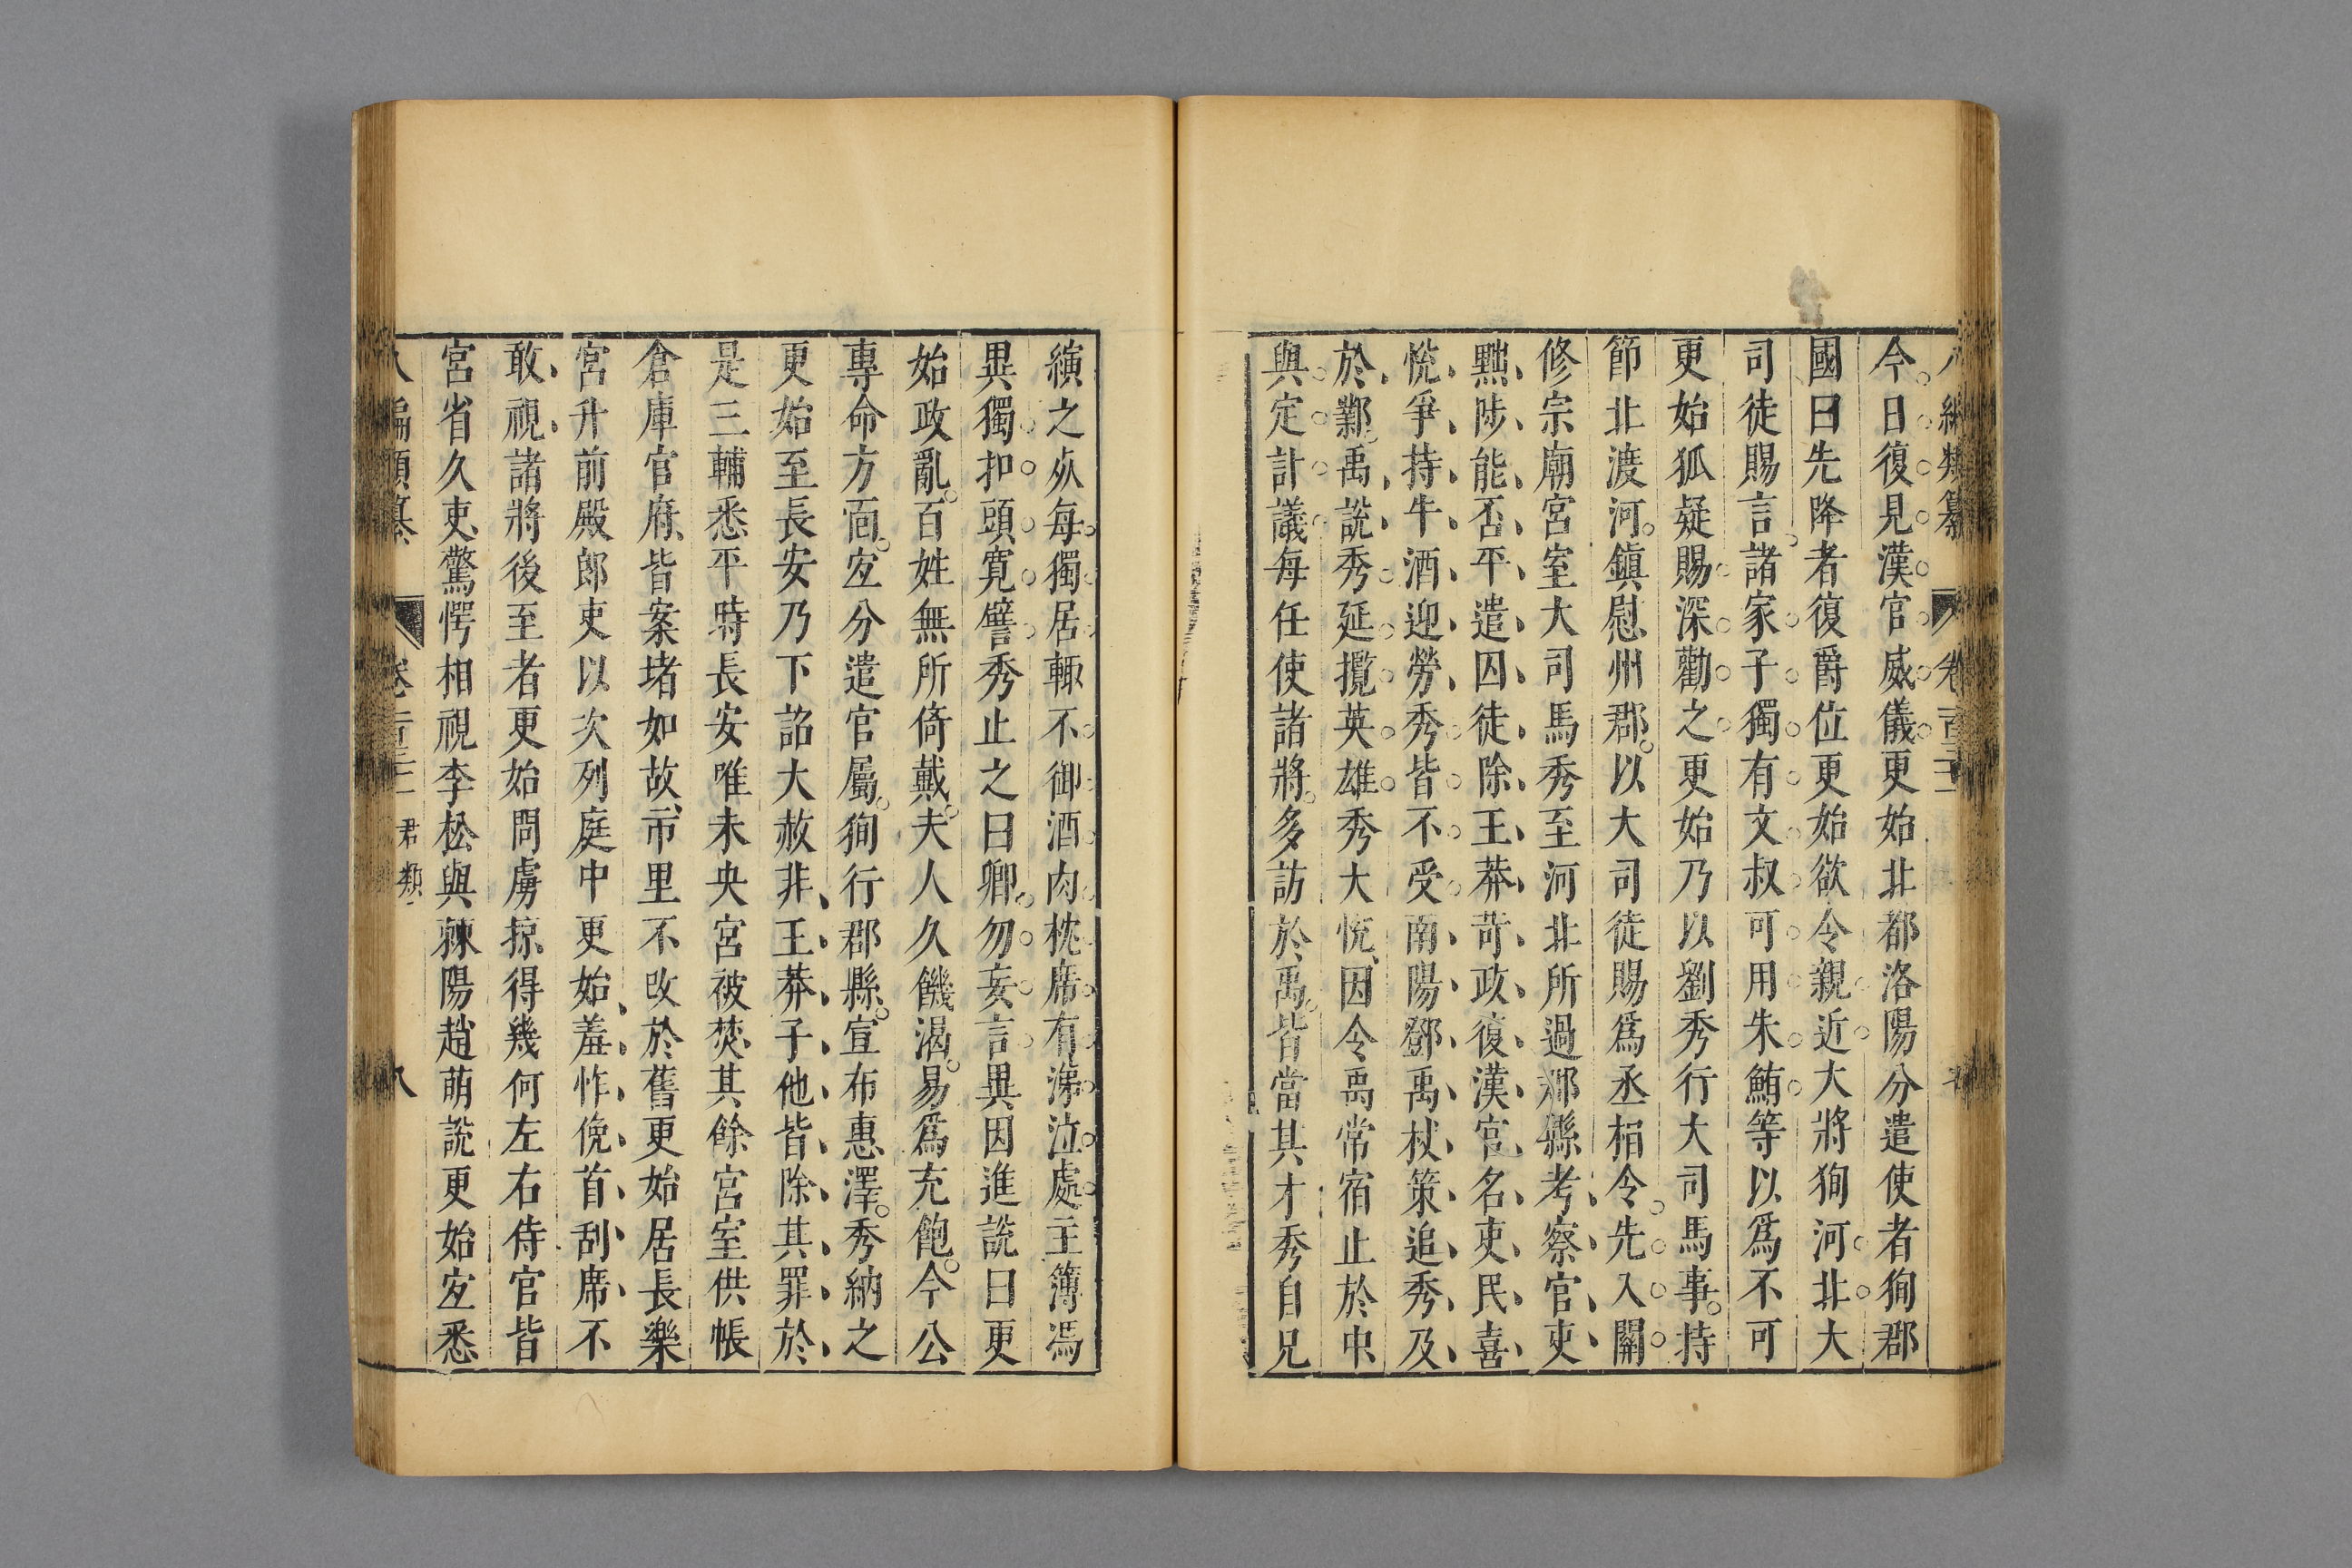 今日復見漢官威儀更始北都洛陽分遣使者狥郡
國曰先降者復爵位更始欲令親近大將狥河北大
司徒賜言諸家子獨有文叔可用朱鮪等以爲不可
更始狐疑賜深勸之更始乃以劉秀行大司馬事持
節北渡河鎮慰州郡以大司徒賜爲丞相令先入關
修宗廟宮室大司馬秀至河北所過郡縣考察官吏
黜陟能否平遣囚徒除王莽苛政復漢官名吏民喜
悅爭持牛酒迎勞秀皆不受南陽鄧禹杖策追秀及
於鄴禹說秀延攬英雄秀大悅因令禹常宿止於中
與定計議每任使諸將多訪於禹皆當其才秀自兄
縯之死每獨居輙不御酒肉枕席有涕泣處主簿馮
異獨扣頭寛譬秀止之曰卿勿妄言異因進說曰更
始政亂百姓無所倚戴夫人久饑渴易爲充飽今公
專命方面宐分遣官屬狥行郡縣宣布惠澤秀納之
更始至長安乃下詔大赦非王莽子他皆除其罪於
是三輔悉平時長安唯未央宮被焚其餘宮室供帳
倉庫官府皆案堵如故市里不改於舊更始居長樂
宮升前殿郎吏以次列庭中更始羞怍俛首刮席不
敢視諸將後至者更始問虜掠得幾何左右侍官皆
宮省久吏驚愕相視李松與棘陽趙萌說更始宐悉
八編類纂 卷 君類 八